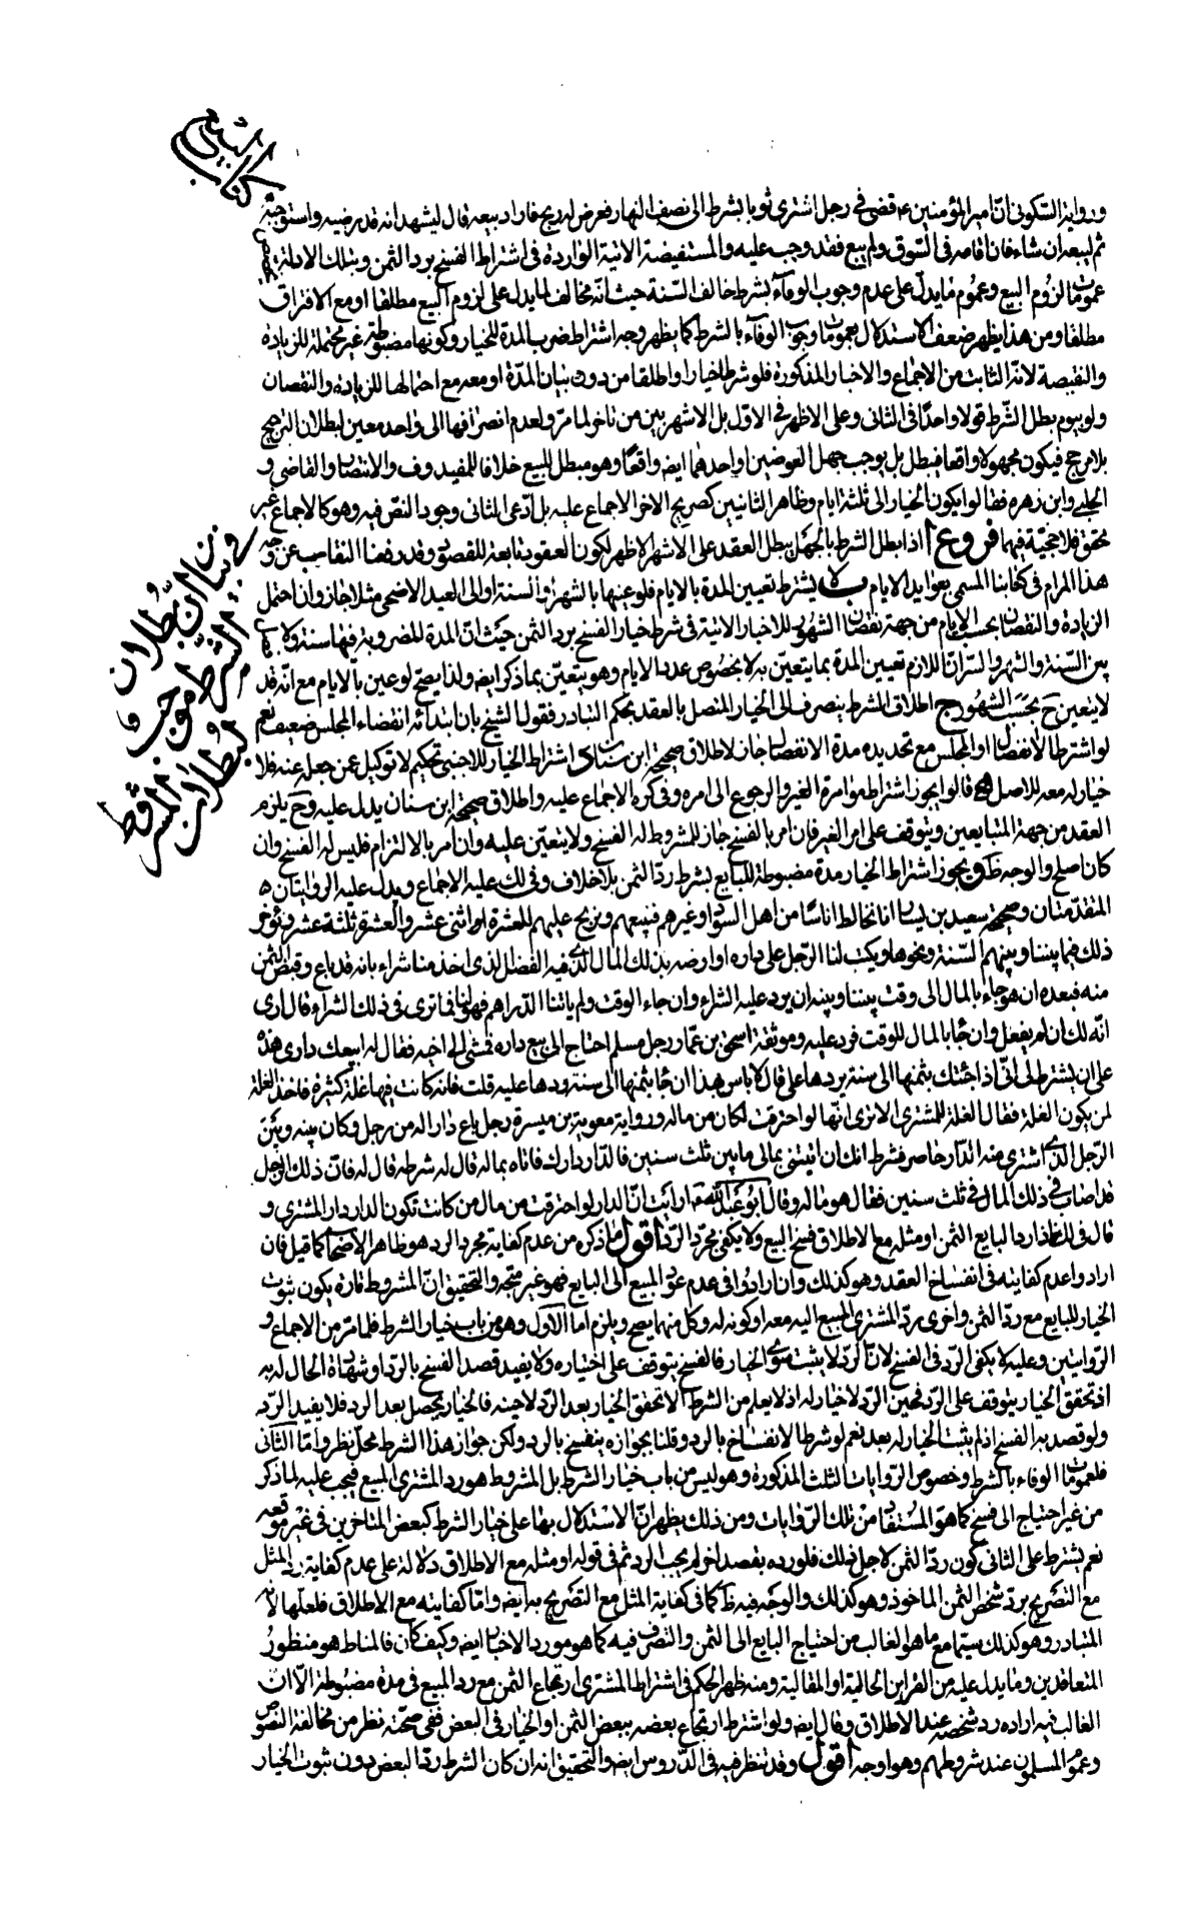 كتاب البيع
ورواية السكوني ان امير المؤمنين ع قضى في رجل اشترى ثوبا بشرط الى نصف النهار فعرض له ربح فاراد بيعه قال ليشهد انه قد رضيه واستوجبه
ثم ليبعه ان شاء فان اقامه في السوق ولم يبع فقد وجب عليه والمستفيضة الاتية الواردة في اشتراط الفسخ برد الثمن وبتلك الادلة
عمومات لزوم البيع وعموم ما يدل على عدم وجوب الوفاء بشرط خالف السنة حيث انه مخالف لما يدل على لزوم البيع مطلقا او مع الافتراق
مطلقا ومن هذا يظهر ضعف الاستدلال بعمومات وجوب الوفاء بالشرط كما يظهر وجه اشتراط ضرب المدة للخيار وكونها مضبوطة غير محتملة للزيادة
والنقيصة لانه الثابت من الاجماع والاخبار المذكورة فلو شرط خيارا واطلقا من دون بيان المدة او معه مع احتمالها للزيادة والنقصان
ولو بيوم بطل الشرط قولا واحدا في الثاني وعلى الاظهر في الاول بل الاشهر بين من تاخر لما مر ولعدم انصرافها الى واحد معين لبطلان الترجيح
بلا مرجح فيكون مجهولا واقعا فيبطل بل يوجب جهل العوضين او احدهما ايضا واقعا وهو مبطل للبيع خلافا للمفيد وف والانتصار والقاضي و
الحلبي وابن زهرة فقالوا يكون الخيار الى ثلثة ايام وظاهر الثانيين كصريح الاخر الاجماع عليه بل ادعى الثاني وجود النص فيه وهو كالاجماع غير
محقق فلا حجية فيهما فروع ا اذا بطل الشرط بالجهل يبطل العقد على الاشهر الاظهر لكون العقود تابعة للقصود وقد رفعنا النقاب عن وجه
هذا المرام في كتابنا المسمى بعوايد الايام ب لا يشترط تعيين المدة بالايام فلو عينها بالشهر او السنة او الى العيد الاضحى مثلا جاز وان احتمل
الزيادة والنقصان بحسب الايام من جهة نقصان الشهور للاخبار الاتية في شرط خيار الفسخ برد الثمن حيث ان المدة المضروبة فيها سنة
بين السنة والشهر والسر ان اللازم تعيين المدة بما يتعين به لا بخصوص عدد الايام وهو يتعين بما ذكر ايضا ولذا يصح لو عين بالايام مع انه قد
لا يتعين ح بحسب الشهور ج اطلاق الشرط ينصرف الى الخيار المتصل بالعقد بحكم التبادر فقول الشيخ بان ابتدائه انقضاء المجلس ضعيف نعم
لو اشترط الانفصال او المجلس مع تحديده مدة الانفصال جاز لاطلاق صحيحة ابن سنان د اشتراط الخيار للاجنبي تحكيم لا توكيل عن جعله عنه فلا
خيار له معه للاصل ه قالوا يجوز اشتراط مؤامرة الغير والرجوع الى امره وفي كره الاجماع عليه واطلاق صحيحة ابن سنان يدل عليه وح يلزم
العقد من جهة المتبايعين ويتوقف على امر الغير فان امر بالفسخ جاز للمشروط له الفسخ ولا يتعين عليه وان امر بالالتزام فليس له الفسخ وان
كان اصلح والوجه ظ و يجوز اشتراط الخيار مدة مضبوطة للبايع بشرط رد الثمن بلا خلاف وفي لك عليه الاجماع ويدل عليه الروايتان
المتقدمتان وصحيحة سعيد بن يسار انا نخالط اناسا من اهل السواد وغيرهم فنبيعهم ونربح عليهم للعشرة او اثنى عشر والعشرة ثلثة عشر ونؤخر
ذلك فيما بيننا وبينهم السنة ونحوها ويكتب لنا الرجل على داره او ارضه بذلك المال الذي فيه الفضل الذى اخذ منا شراء بانه قد باع وقبض الثمن
منه فبعده ان هو جاء بالمال الى وقت بيننا وبينه ان يرد عليه الشراء وان جاء الوقت ولم ياتنا الدراهم فهو لنا فما ترى في ذلك الشراء قال ارى
انه لك ان لم يفعل وان جاء بالمال للوقت فرد عليه وموثقة اسحق بن عمار رجل مسلم احتاج الى بيع داره فمشى الى اخيه فقال له ابيعك دارى هذه
على ان يشترط لى انى اذا جئتك بثمنها الى سنة يردها على قال لا باس بهذا ان جاء بثمنها الى سنة ردها عليه قلت فانه كانت فيها غلة كثيرة فاخذ الغلة
لمن يكون الغلة فقال الغلة للمشترى الا ترى انها لو احترقت لكان من ماله ورواية معوية بن ميسرة رجل باع دارا له من رجل وكان بينه وبين
الرجل الذى اشترى منه الدار حاصر فشرط انك ان اتيتنى بمالى ما بين ثلث سنين فالدار دارك فاتاه بماله قال له شرطه قال له فان ذلك الرجل
قد اصاب في ذلك المال في ثلث سنين فقال هو ماله وقال ابو عبد الله ع ارايت ان الدار لو احترقت من مال من كانت تكون الدار دار المشترى و
قال في اذا رد البايع الثمن او مثله مع الاطلاق فسخ البيع ولا يكفى مجرد الرد اقول ما ذكره من عدم كفاية مجرد الرد هو ظاهر الاصحاب كما قيل فان
ارادوا عدم كفايته في انفساخ العقد وهو كذلك وان ارادوا في عدم عود المبيع الى البايع فهو غير متجه والتحقيق ان المشروط فارة يكون ثبوت
الخيار للبايع مع رد الثمن واخرى رد المشترى المبيع اليه معه او كونه له وكل منهما يصح ويلزم اما الاول وهو من باب خيار الشرط فلما مر من الاجماع و
الروايتين وعليه لا يكفى الرد في الفسخ لان الرد لا يثبت سوى الخيار فالفسخ يتوقف على اختياره ولا يفيد قصد الفسخ بالرد او شهادة الحال له به
اذ تحقق الخيار يتوقف على الرد فحين الرد لا خيار له اذ لا يعلم من الشرط الا تحقق الخيار بعد الرد لا حينه فالخيار يحصل بعد الرد فلا يفيد الرد
ولو قصد به الفسخ اذ لم يثبت الخيار له بعد نعم لو شرط الانفساخ بالرد وقلنا بجوازه ينفسخ بالرد ولكن جواز هذا الشرط محل نظر واما الثانى
فلعمومات الوفاء بالشرط وخصوص الروايات الثلث المذكورة وهو ليس من باب خيار الشرط بل المشروط هو رد المشترى المبيع فيجب عليه لما ذكر
من غير احتياج الى فسخ كما هو المستفاد من تلك الروايات ومن ذلك يظهر ان الاستدلال بها على خيار الشرط كبعض المتاخرين في غير موقعه
نعم يشترط على الثانى كون رد الثمن لاجل ذلك فلو رده بقصد اخر لم يجب الرد ثم في قوله او مثله مع الاطلاق دلالة على عدم كفاية رد المثل
مع التصريح برد شخص الثمن الماخوذ وهو كذلك والوجه فيه ظ كما في كفاية المثل مع التصريح به ايضا واما كفايته مع الاطلاق فلعلها لانه
المتبادر وهو كذلك سيما مع ما هو الغالب من احتياج البايع الى الثمن والتصرف فيه كما هو مورد الاخبار ايضا وكيف كان فالمناط هو منظور
المتعاقدين وما يدل عليه من القراين الحالية او المقالية ومنه ظهر الحكم في اشتراط المشترى ارتجاع الثمن مع رد المبيع في مدة مضبوطة الا ان
الغالب فيه ارادة رد شخصه عند الاطلاق وقال ايضا ولو اشترط ارتجاع بعضه ببعض الثمن او الخيار في البعض ففى صحته نظر من مخالفة النصوص
وعموم المسلمون عند شروطهم وهو اوجه اقول وقد تنظر فيه في الدروس ايضا والتحقيق انه ان كان الشرط رد البعض بدون ثبوت الخيار
في بيان ان بطلان
الشرط موجب
لبطلان المشروط